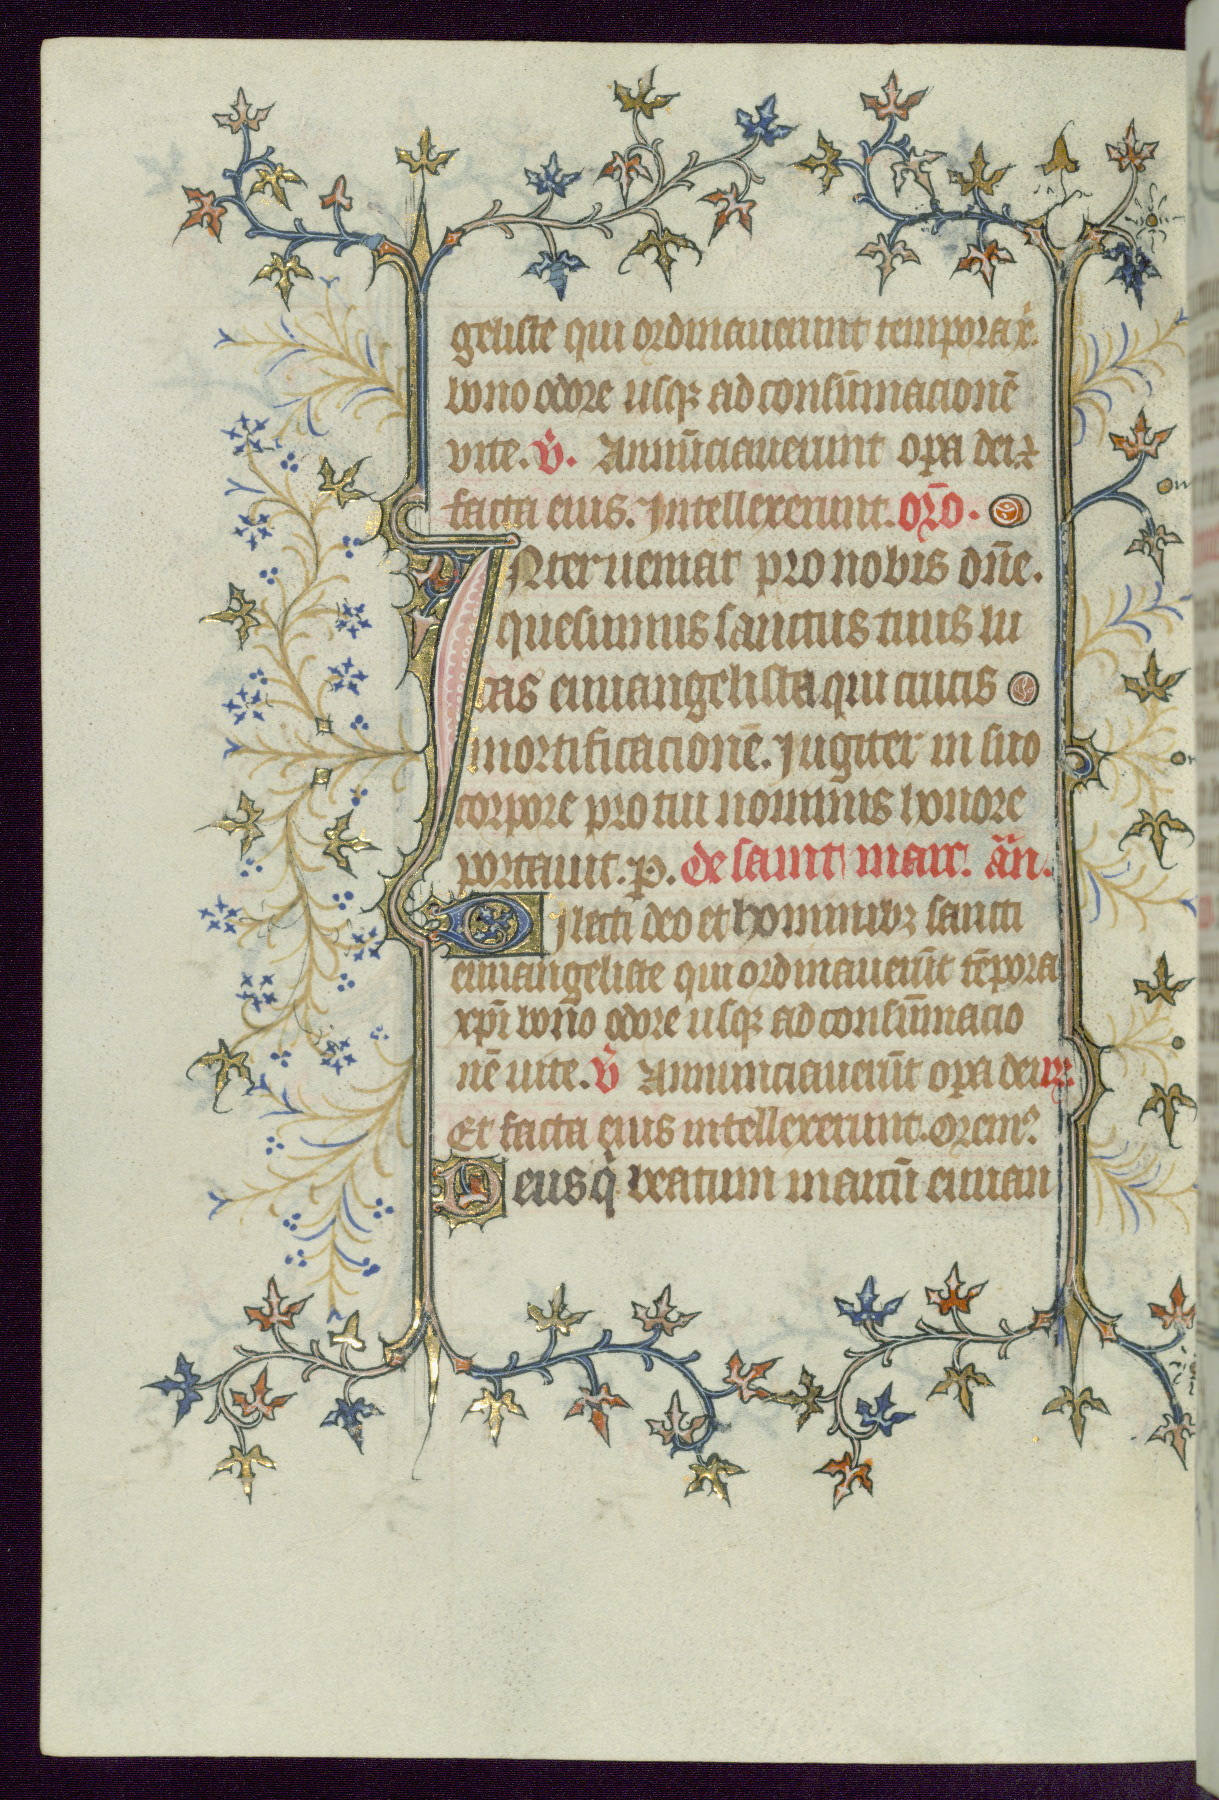 geliste qui ordinauerunt tempora x̄.
bono odore usq̄ ad consūmacionē
uite. v̄. Annūciauerunt opa dei. ⁊
facta eius. Intellexerunt. orō.
INterueniat pro nobis dn̄e.
quesumus sanctus tuus lu
cas euuangelista qui crucis
mortificacionē. Jugiter in suo
corpore pro tui nominis honore
portauit. p. de saint marc. ān.
Dilecti deo et hominibꝫ sancti
euuangeliste qui ordinauerūt tēpora
xpī bono odore usq̄ ad consūmacio
nē uite. v̄ Annunciauerūt opa dei ꝶ.
Et facta eius intellexerunt. Oremꝰ
Deus q̇ beatum marcū euuan